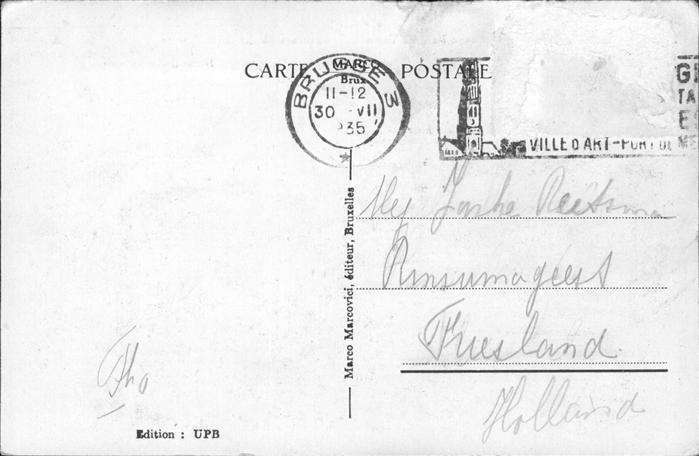 CARTE POSTALE
MARCO
Brux
BRUGGE 3
11-12
30 VII
1935
VILLE D'ART-PORT DE
Marco Marcovici, éditeur, Bruxelles
Mej Reitsma
Rinsumageest
Friesland
Holland
Edition : UPB